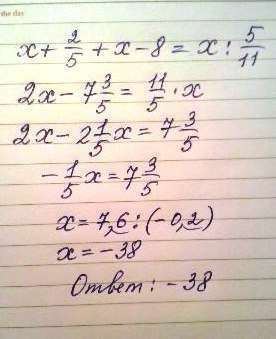 the day
x + 2/5 + x - 8 = x : 5/11
2x - 7 3/5 = 11/5 · x
2x - 2 1/5 x = 7 3/5
- 1/5 x = 7 3/5
x = 7,6 : (-0,2)
x = -38
Ответ: -38